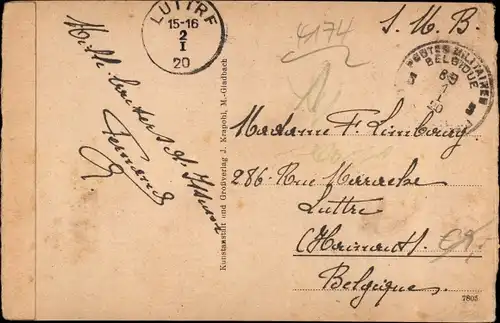 LUTTRE
15-16
2
I
20
4174
S. M. B.
POSTES MILITAIRES
BELGIQUE
1
I
20
Mille baisers d'
Fernand
Kunstanstalt und Großverlag J. Krapohl, M.-Gladbach
Madame F. Limbourg
286 - Rue
Luttre
(Hainaut)
Belgique.
7805